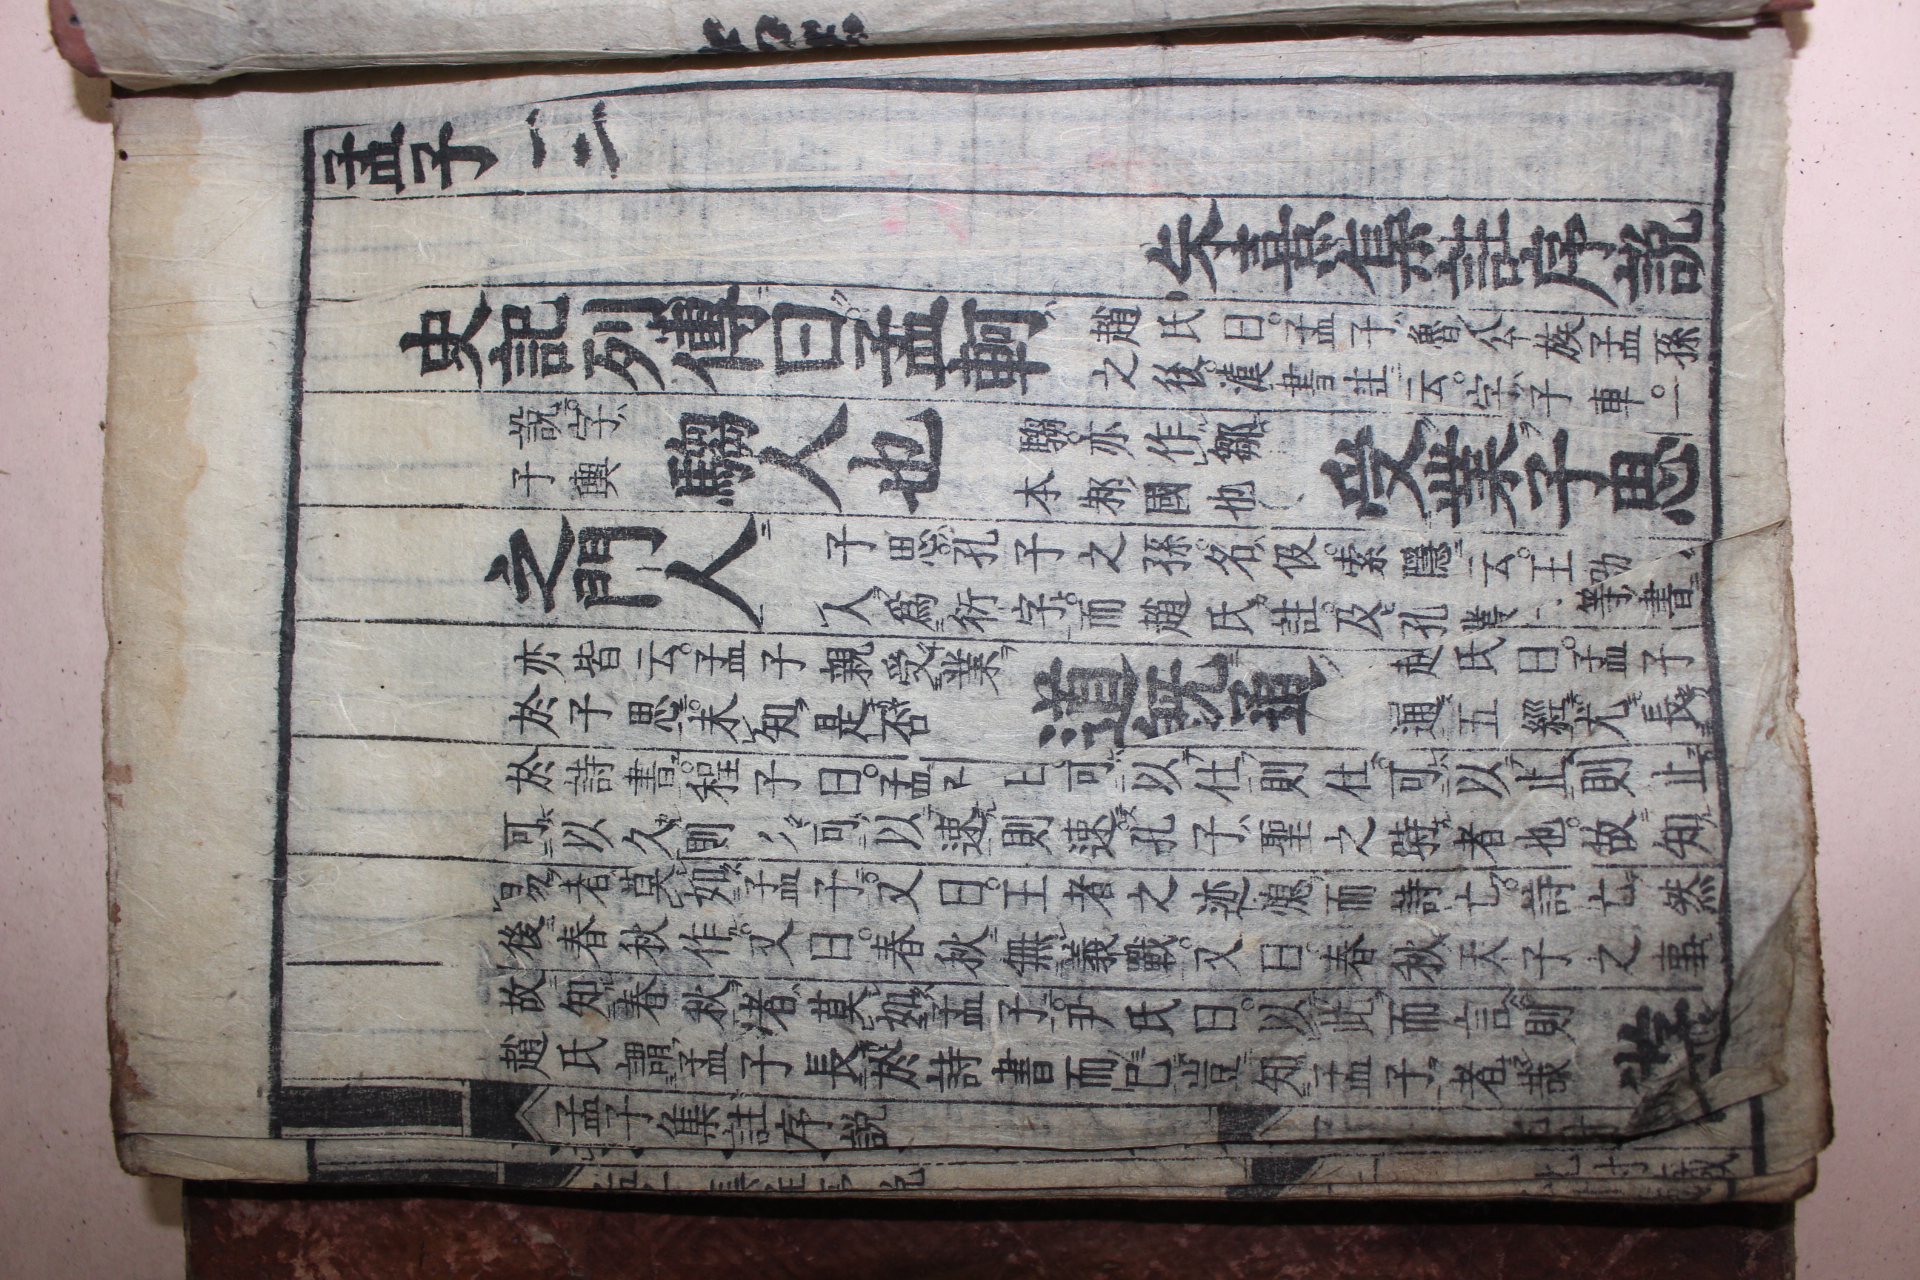 孟子 一二
朱熹集註序説
史記列傳曰孟軻
趙氏曰。孟子魯公族孟孫
之後。漢書註云。字子車。一
説。字
子輿
騶人也
騶。亦作鄒
本邾國也
受業子思
之門人
子思。孔子之孫。名伋。索隱云。王劭
人為衍字。而趙氏註。及孔叢等書
亦皆云。孟子親受業
於子思。未知是否
道既通
趙氏曰。孟子
通五經。尤長
於詩書。程子曰。孟子曰。可以仕則仕。可以止則止
可以久則久可以速則速。孔子聖之時者也。故知
易者。莫如孟子。又曰。王者之迹熄而詩亡。詩亡然
後春秋作。又曰。春秋無義戰。又曰。春秋天子之事
故知春秋者。莫如孟子。尹氏曰。以此而言。則
趙氏謂孟子長於詩書而已豈知孟子者哉
游
孟子集註序説